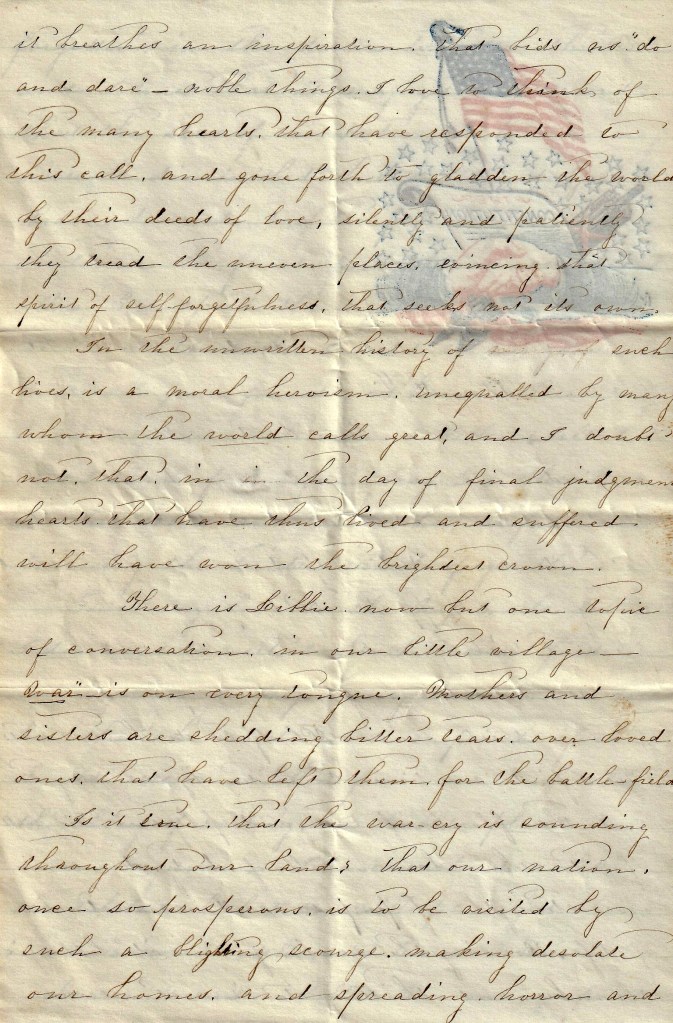 it breathes an inspiration. that bids us "do
and dare" — noble things. I love to think of
the many hearts. that have responded to
this call. and gone forth to gladden the world
by their deeds of love, silently and patiently
they tread the uneven places. evincing that
spirit of self forgetfulness. that seeks not its own.
In the unwritten history of such
lives, is a moral heroism. unequalled by many
whom the world calls great, and I doubt
not. that. in the day of final judgmen
hearts that have thus lived and suffered.
will have won the brightest crown.
There is Libbie. now but one topic
of conversation. in our little village —
War" — is on every tongue. Mothers and
sisters are shedding bitter tears. over loved
ones. that have left them. for the battle field
Is it true. that the war-cry is sounding
throughout our land; that our nation.
once so prosperous. is to be visited by
such a blighting scourge. making desolate
our homes. and spreading horror and